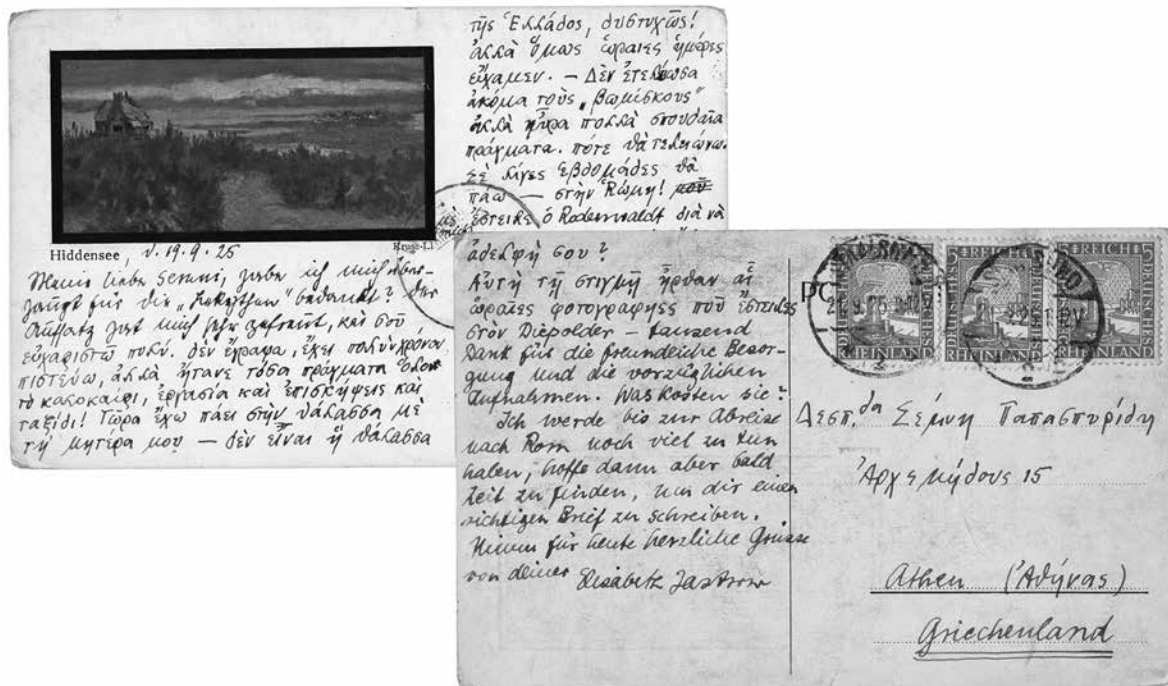 Hiddensee, d. 19.9.25
Meine liebe Semni, habe ich mich über-
haupt für die bedankt? der
Aufsatz hat mich sehr gefreut, καὶ σοῦ
εὐχαριστῶ πολύ. δὲν ἔγραψα, ἔχει πολὺν χρόνον
πιστεύω, ἀλλὰ ἤτανε τόσα πράγματα ὅλον
τὸ καλοκαίρι, ἐργασία καὶ ἐπισκήψεις καὶ
ταξίδι! Τῶρα ἔχω πάει στὴν θάλασσα μὲ
τὴ μητέρα μου — δὲν εἶναι ἡ θάλασσα
τῆς Ἑλλάδος, δυστυχῶς!
ἀλλὰ ὅμως ὡραιες ἡμέρες
εἴχαμεν. — Δὲν ἐτελείωσα
ἀκόμα τοὺς „βωμίσκους"
ἀλλὰ ηὗρα πολλὰ σπουδαῖα
πράγματα. πότε θὰ τελειώνω.
Σὲ λίγες ἑβδομάδες θὰ
πάω — στὴν Ῥώμη!
ἔστειλε ὁ Rodenwaldt διὰ νὰ
ἀδελφή σου?
Αὐτὴ τὴ στιγμὴ ἦρθαν αἱ
ὡραῖες φωτογραφήες ποῦ ἔστειλες
στὸν Diepolder — tausend
Dank für die freundliche Besor-
gung und die vorzüglichen
Aufnahmen. Was kosten sie?
Ich werde bis zur Abreise
nach Rom noch viel zu tun
haben, hoffe dann aber bald
Zeit zu finden, um dir einen
richtigen Brief zu schreiben.
Nimm für heute herzliche Grüsse
von deiner Elisabeth Jastrow
DEUTSCHES REICH 5
RHEINLAND
DEUTSCHES REICH 5
RHEINLAND
DEUTSCHES REICH 5
RHEINLAND
PC
Δεσπ.δα Σέμνη Παπασπυρίδη
Ἀρχημήδους 15
Athen (Ἀθήνας)
Griechenland